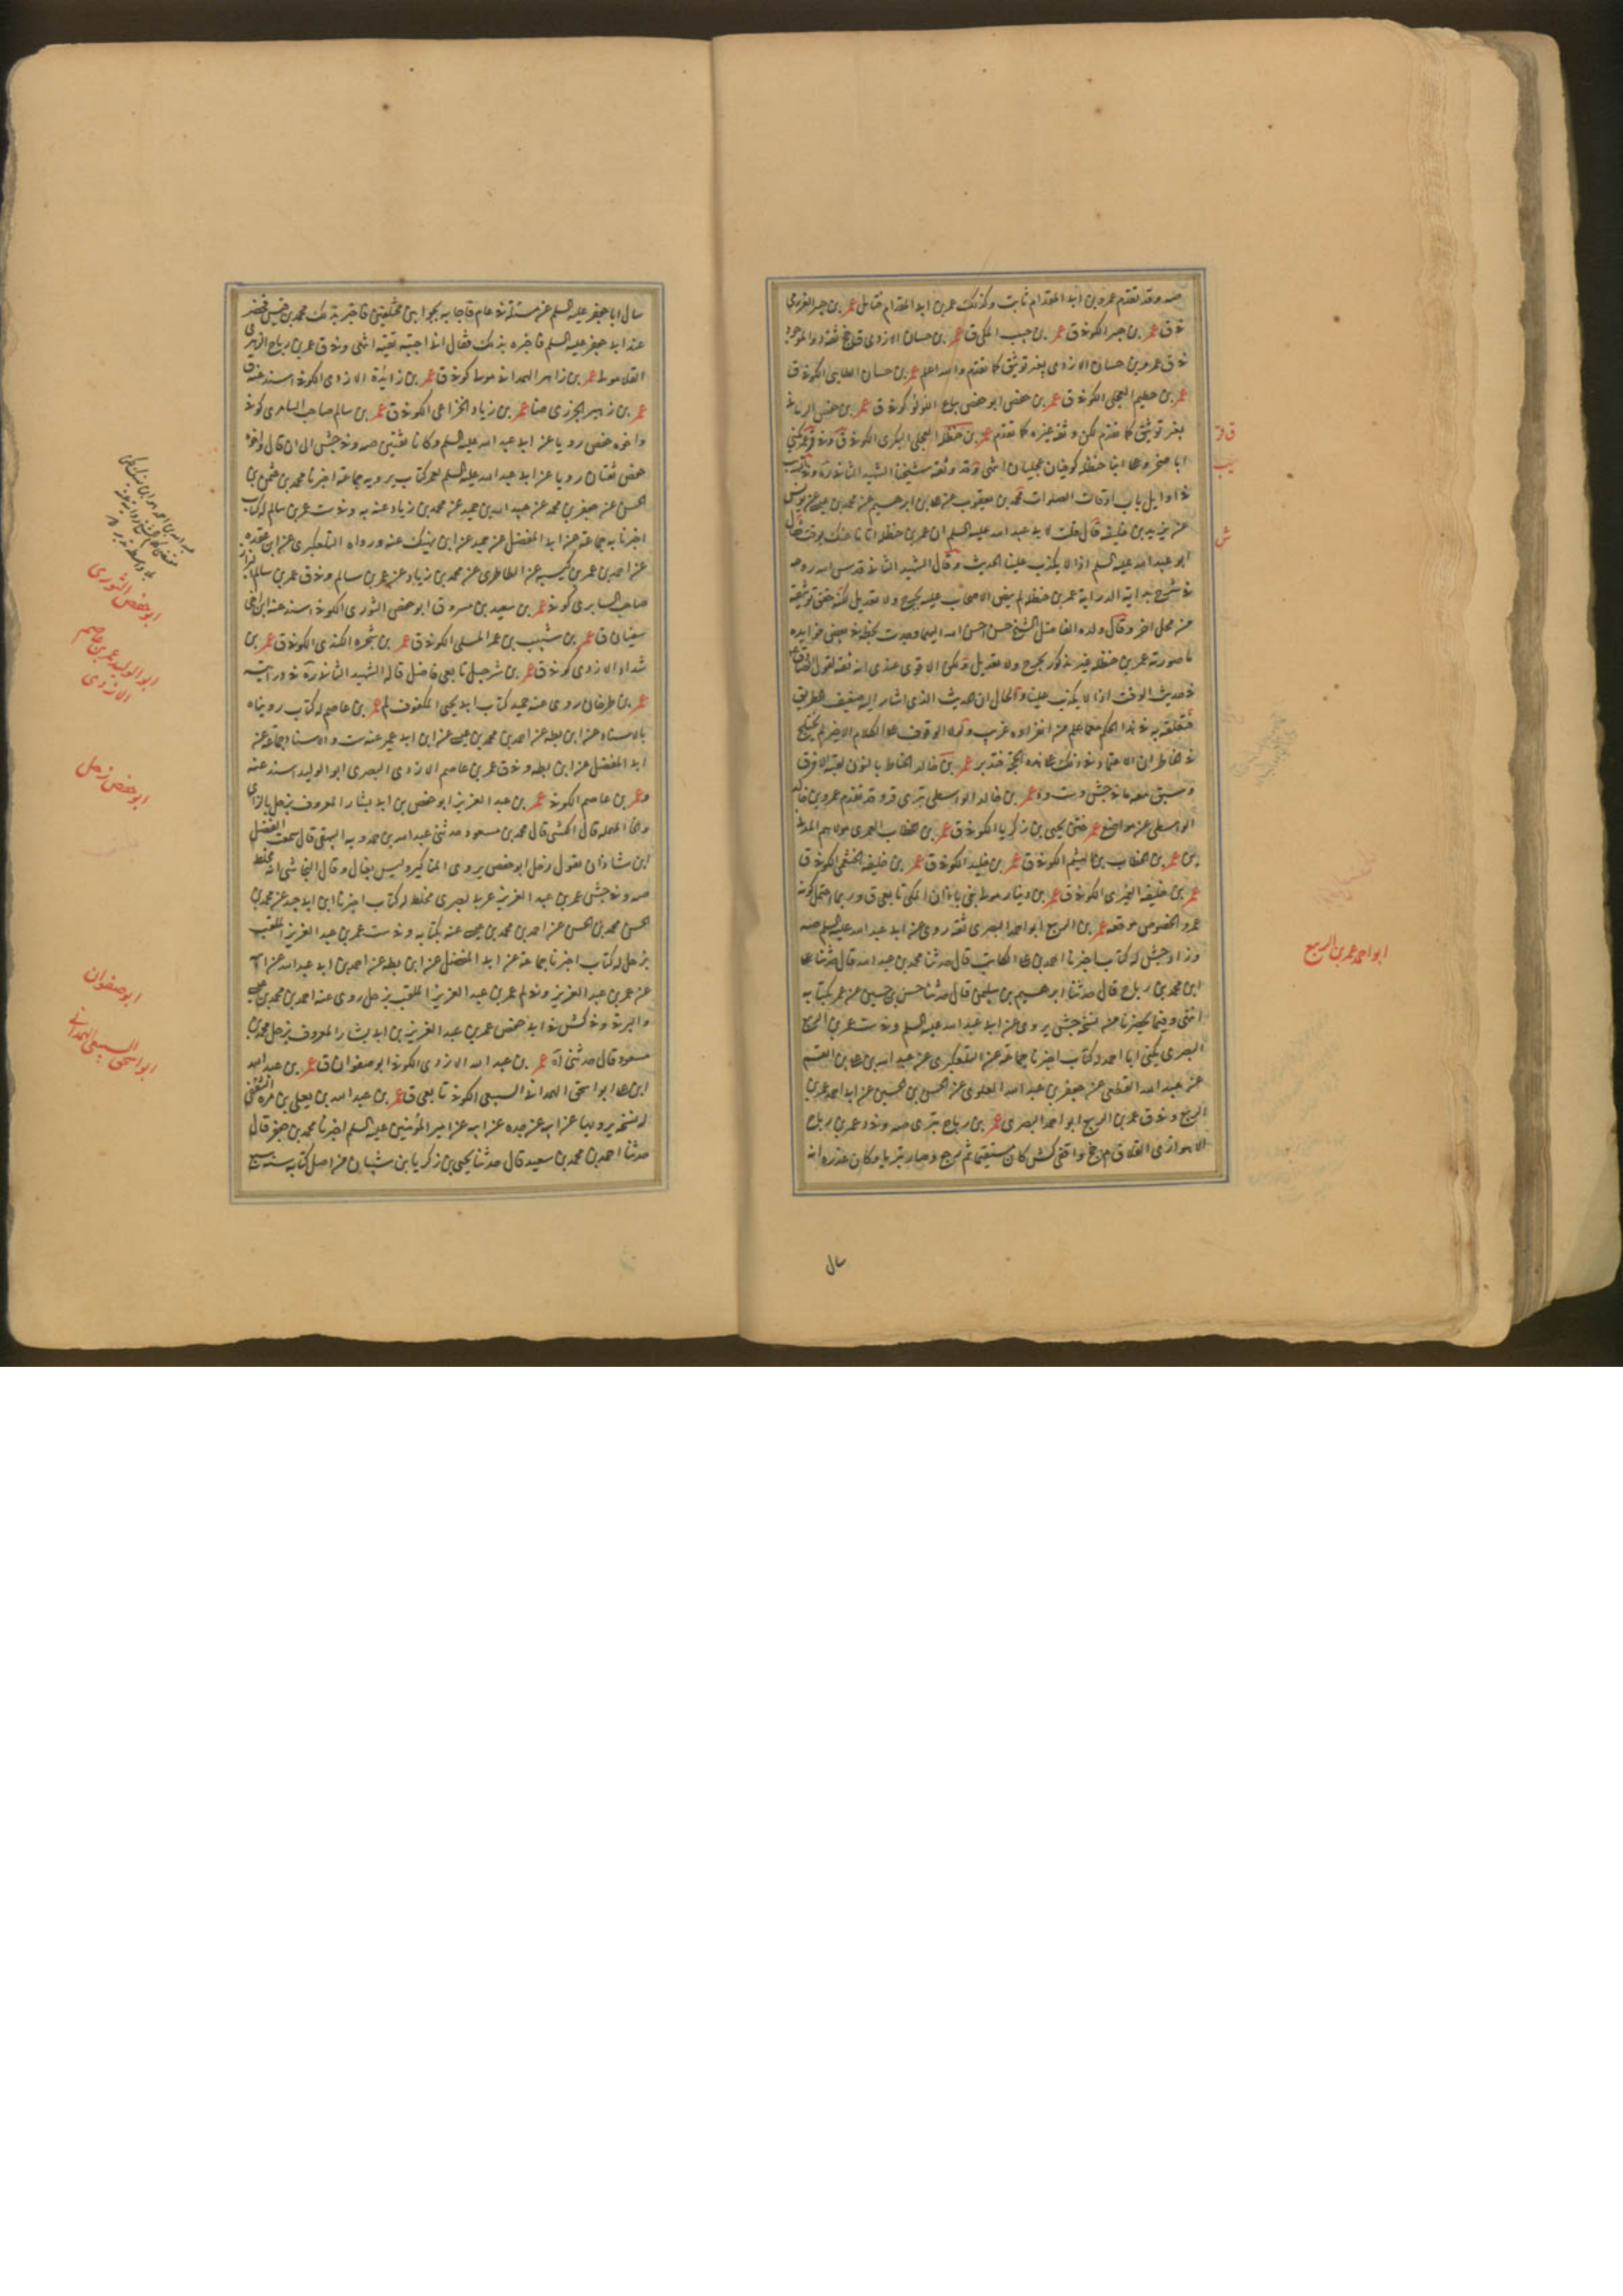 صه وقد تقدم عمرو بن ابى المقدام ثابت وكذلك عمر بن ابى المقدام فتامل عمر بن جبر العزرمى
فى ق عمر بن جبر الكوفى ق عمر بن حبيب المكى ق عمر بن حسان الازدى ق لاخ ثقة د والموجود
فى ق عمرو بن حسان الازدى بغير توثيق كما تقدم والله اعلم عمر بن حسان الطائى الكوفى ق
عمر بن حطيم العجلى الكوفى ق عمر بن حفص ابو حفص بياع اللؤلؤ كوفى ق عمر بن حفص الرمانى
بغير توثيق كما تقدم لكن وثقه غيره كما تقدم عمر بن حنظلة العجلى البكرى الكوفى ق وفى قر عمر يكنى
ابا صخر وعلى ابنا حنظلة كوفيان عجليان انتهى وقد وثقه شيخنا الشهيد الثانى
فى اوايل باب اوقات الصلوات محمد بن يعقوب عن على بن ابرهيم عن محمد بن عيسى عن يونس
عن يزيد بن خليفة قال قلت لابى عبد الله عليه السلم ان عمر بن حنظلة اتانا عنك بوقت فقال
ابو عبد الله عليه السلم اذا لا يكذب علينا الحديث وقال الشهيد الثانى قدس الله روحه
فى شرح بداية الدراية عمر بن حنظلة لم ينص الاصحاب عليه بجرح ولا تعديل لكنه حقق توثيقه
من محل اخر وقال ولده الفاضل الشيخ حسن احسن الله اليه وجدت بخطه فى بعض فوايده
ما صورته عمر بن حنظلة غير مذكور بجرح ولا تعديل ولكن الاقوى عندى انه ثقة لقول الصادق ع
فى حديث الوقت اذا لا يكذب علينا والحال ان الحديث الذى اشار اليه ضعيف الطريق
فتعلقه به فى هذا الحكم مع ما علم من انفراده غريب ولولا الوقوف على الكلام الاخير لم يختلج
فى الخاطر ان الاعتماد فى ذلك على هذه الحجة فتدبر عمر بن خالد الحناط بالنون لقبه الافرق
وسبق معه ما فى جش وست وه عمر بن خالد الواسطى بترى قر وقد تقدم عمرو بن خالد
الواسطى عن مواضع عمر ختن يحيى بن زكريا الكوفى ق عمر بن الخطاب العمرى مولاهم المدنى
ين عمر بن الخطاب بن الهيثم الكوفى ق عمر بن خليد الكوفى ق عمر بن خليفة الخثعمى الكوفى ق
عمر بن خليفة الكوفى ق عمر بن دينار مولى بنى باذان المكى تابعى ق وربما احتمل كونه
عمرو المخصوص موقعه عمر بن الربيع ابو احمد البصرى ثقة روى عن ابى عبد الله عليه السلم صه
وزاد جش له كتاب اخبرنا احمد بن على الكاتب قال حدثنا محمد بن عبد الله قال حدثنا على
ابن محمد بن رباح قال حدثنا ابرهيم بن سليمن قال حدثنا حسن بن حسين عن عمر بكتابه
انتهى وفيما بحضرنا من نسخة جش يروى عن ابى عبد الله عليه السلم وفى ست عمر بن الربيع
البصرى يكنى ابا احمد له كتاب اخبرنا جماعة عن التلعكبرى عن عبد الله بن على بن القسم
عن عبد الله القطعى عن جعفر بن عبد الله العلوى عن الحسن بن الحسين عن ابى احمد عمر بن
الربيع وفى ق عمر بن الربيع ابو احمد البصرى عمر بن رباح بترى صه وفى د عمر بن رباح
الاهوازى القلا ق م جخ واقفى كش كان مستقيما ثم رجع وصار بتريا وكان عذره انه
سال
ابو احمد عمر بن الربيع
سال ابا جعفر عليه السلم عن مسئلة فى عام فاجابه بجوابين مختلفين فاخبر بذلك محمد بن قيس فحضر
عند ابى جعفر عليه السلم فاخبره بذلك فقال انا اجبته تقية انتهى وفى ق عمر بن رباح الزهرى
القلا مولى عمر بن زاهر الهمدانى مولى كوفى ق عمر بن زائدة الازدى الكوفى اسند عنه ق
عمر بن زهير الجزرى عمر بن زياد الخزاعى الكوفى ق عمر بن سالم صاحب السابرى كوفى
واخوه حفص رويا عن ابى عبد الله عليه السلم وكانا ثقتين صه وفى جش الى ان قال واخوه
حفص ثقتان رويا عن ابى عبد الله عليه السلم لعمر كتاب يرويه جماعة اخبرنا محمد بن عثمن بن
الحسن عن جعفر بن محمد عن عبيد الله بن حميد عن محمد بن زياد عنه به وفى ست عمر بن سالم له كتاب
اخبرنا به جماعة عن ابى المفضل عن حميد عن ابن نهيك عنه ورواه التلعكبرى عن ابن عقدة
عن احمد بن عمر بن كيسبة عن الطاطرى عن محمد بن زياد عن عمر بن سالم وفى ق عمر بن سالم
صاحب السابرى كوفى عمر بن سعيد بن مسروق ابو حفص الثورى الكوفى اسند عنه ابن اخى
سفيان ق عمر بن شبيب بن عمر المسلى الكوفى ق عمر بن شجرة الكندى الكوفى ق عمر بن
شداد الازدى كوفى ق عمر بن شرحبيل تابعى فاضل قاله الشهيد الثانى ره فى درايته
عمر بن طرخان روى عنه حميد كتاب ابى يحيى المكفوف لم عمر بن عاصم له كتاب رويناه
بالاسناد عن ابن بطة عن احمد بن محمد بن عيسى عن ابن ابى عمير عنه ست والاسناد جماعة عن
ابى المفضل عن ابن بطة وفى ق عمر بن عاصم الازدى البصرى ابو الوليد اسند عنه
وعمر بن عاصم الكوفى عمر بن عبد العزيز ابو حفص بن ابى بشار المعروف بزحل بالزاى
والحا المهملة قال الكشى قال محمد بن مسعود حدثنى عبد الله بن حمدويه البيهقى قال سمعت الفضل
ابن شاذان يقول زحل ابو حفص يروى المناكير وليس بغال وقال النجاشى انه مخلط
صه وفى جش عمر بن عبد العزيز عربى بصرى مخلط له كتاب اخبرنا ابن ابى جيد عن محمد بن
الحسن محمد بن الحسن عن احمد بن محمد بن عيسى عنه بكتابه وفى ست عمر بن عبد العزيز الملقب
بزحل له كتاب اخبرنا جماعة عن ابى المفضل عن ابن بطة عن احمد بن ابى عبد الله عن ابيه
عن عمر بن عبد العزيز وفى لم عمر بن عبد العزيز الملقب بزحل روى عنه احمد بن محمد بن عيسى
والبرقى وفى كش فى ابى حفص عمر بن عبد العزيز بن ابى بشار المعروف بزحل محمد بن
مسعود قال حدثنى اه عمر بن عبد الله الازدى الكوفى ابو صفوان ق عمر بن عبد الله
ابن على ابو اسحق الهمدانى السبيعى الكوفى تابعى ق عمر بن عبد الله بن يعلى بن مرة الثقفى
له نسخة يرويها عن ابيه عن جده عن ابيه عن امير المؤمنين عليه السلم اخبرنا محمد بن جعفر قال
حدثنا احمد بن محمد بن سعيد قال حدثنا يحيى بن زكريا بن شيبان من اصل كتابه سنة سبع
ابو حفص الثورى
ابو الوليد عمر بن عاصم
الازدى
ابو حفص زحل
ابو صفوان
ابو اسحق السبيعى الهمدانى